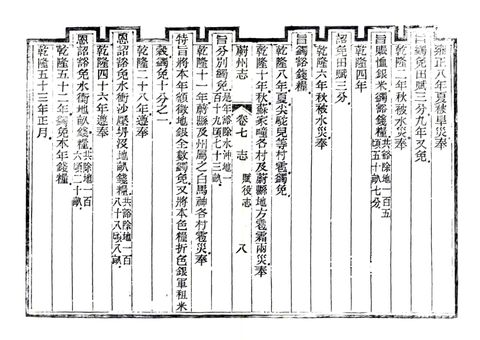 雍正八年夏秋旱災奉
旨蠲免田賦三分九年又免
乾隆二年秋被水災奉
旨賑恤銀米蠲豁錢糧共豁除地一百五
頃五十畝七分
乾隆四年
詔免田賦三分
乾隆六年秋被水災奉
旨蠲豁錢糧
乾隆八年夏尖 兒等村雹災奉
乾隆十年秋蘇家疃各村及蔚縣地方雹霜兩災奉
蔚州志 卷七 志 賦役志 八
旨分別蠲免是年豁除水沖地一
百十九頃七十三畝
乾隆十一年蔚縣及州屬之白馬神各村雹災奉
特旨將本年額徵地銀全數蠲免又將本色糧折色銀軍租米
穀蠲免十分之一
乾隆二十八年遵奉
恩詔豁免水衝沙壓坍沒地畝錢糧共豁除地一百
八十八頃八畝
乾隆四十六年遵奉
恩詔豁免水衝地畝錢糧共豁除地一百
六頃二十畝
乾隆五十二年蠲免本年錢糧
乾隆五十三年正月